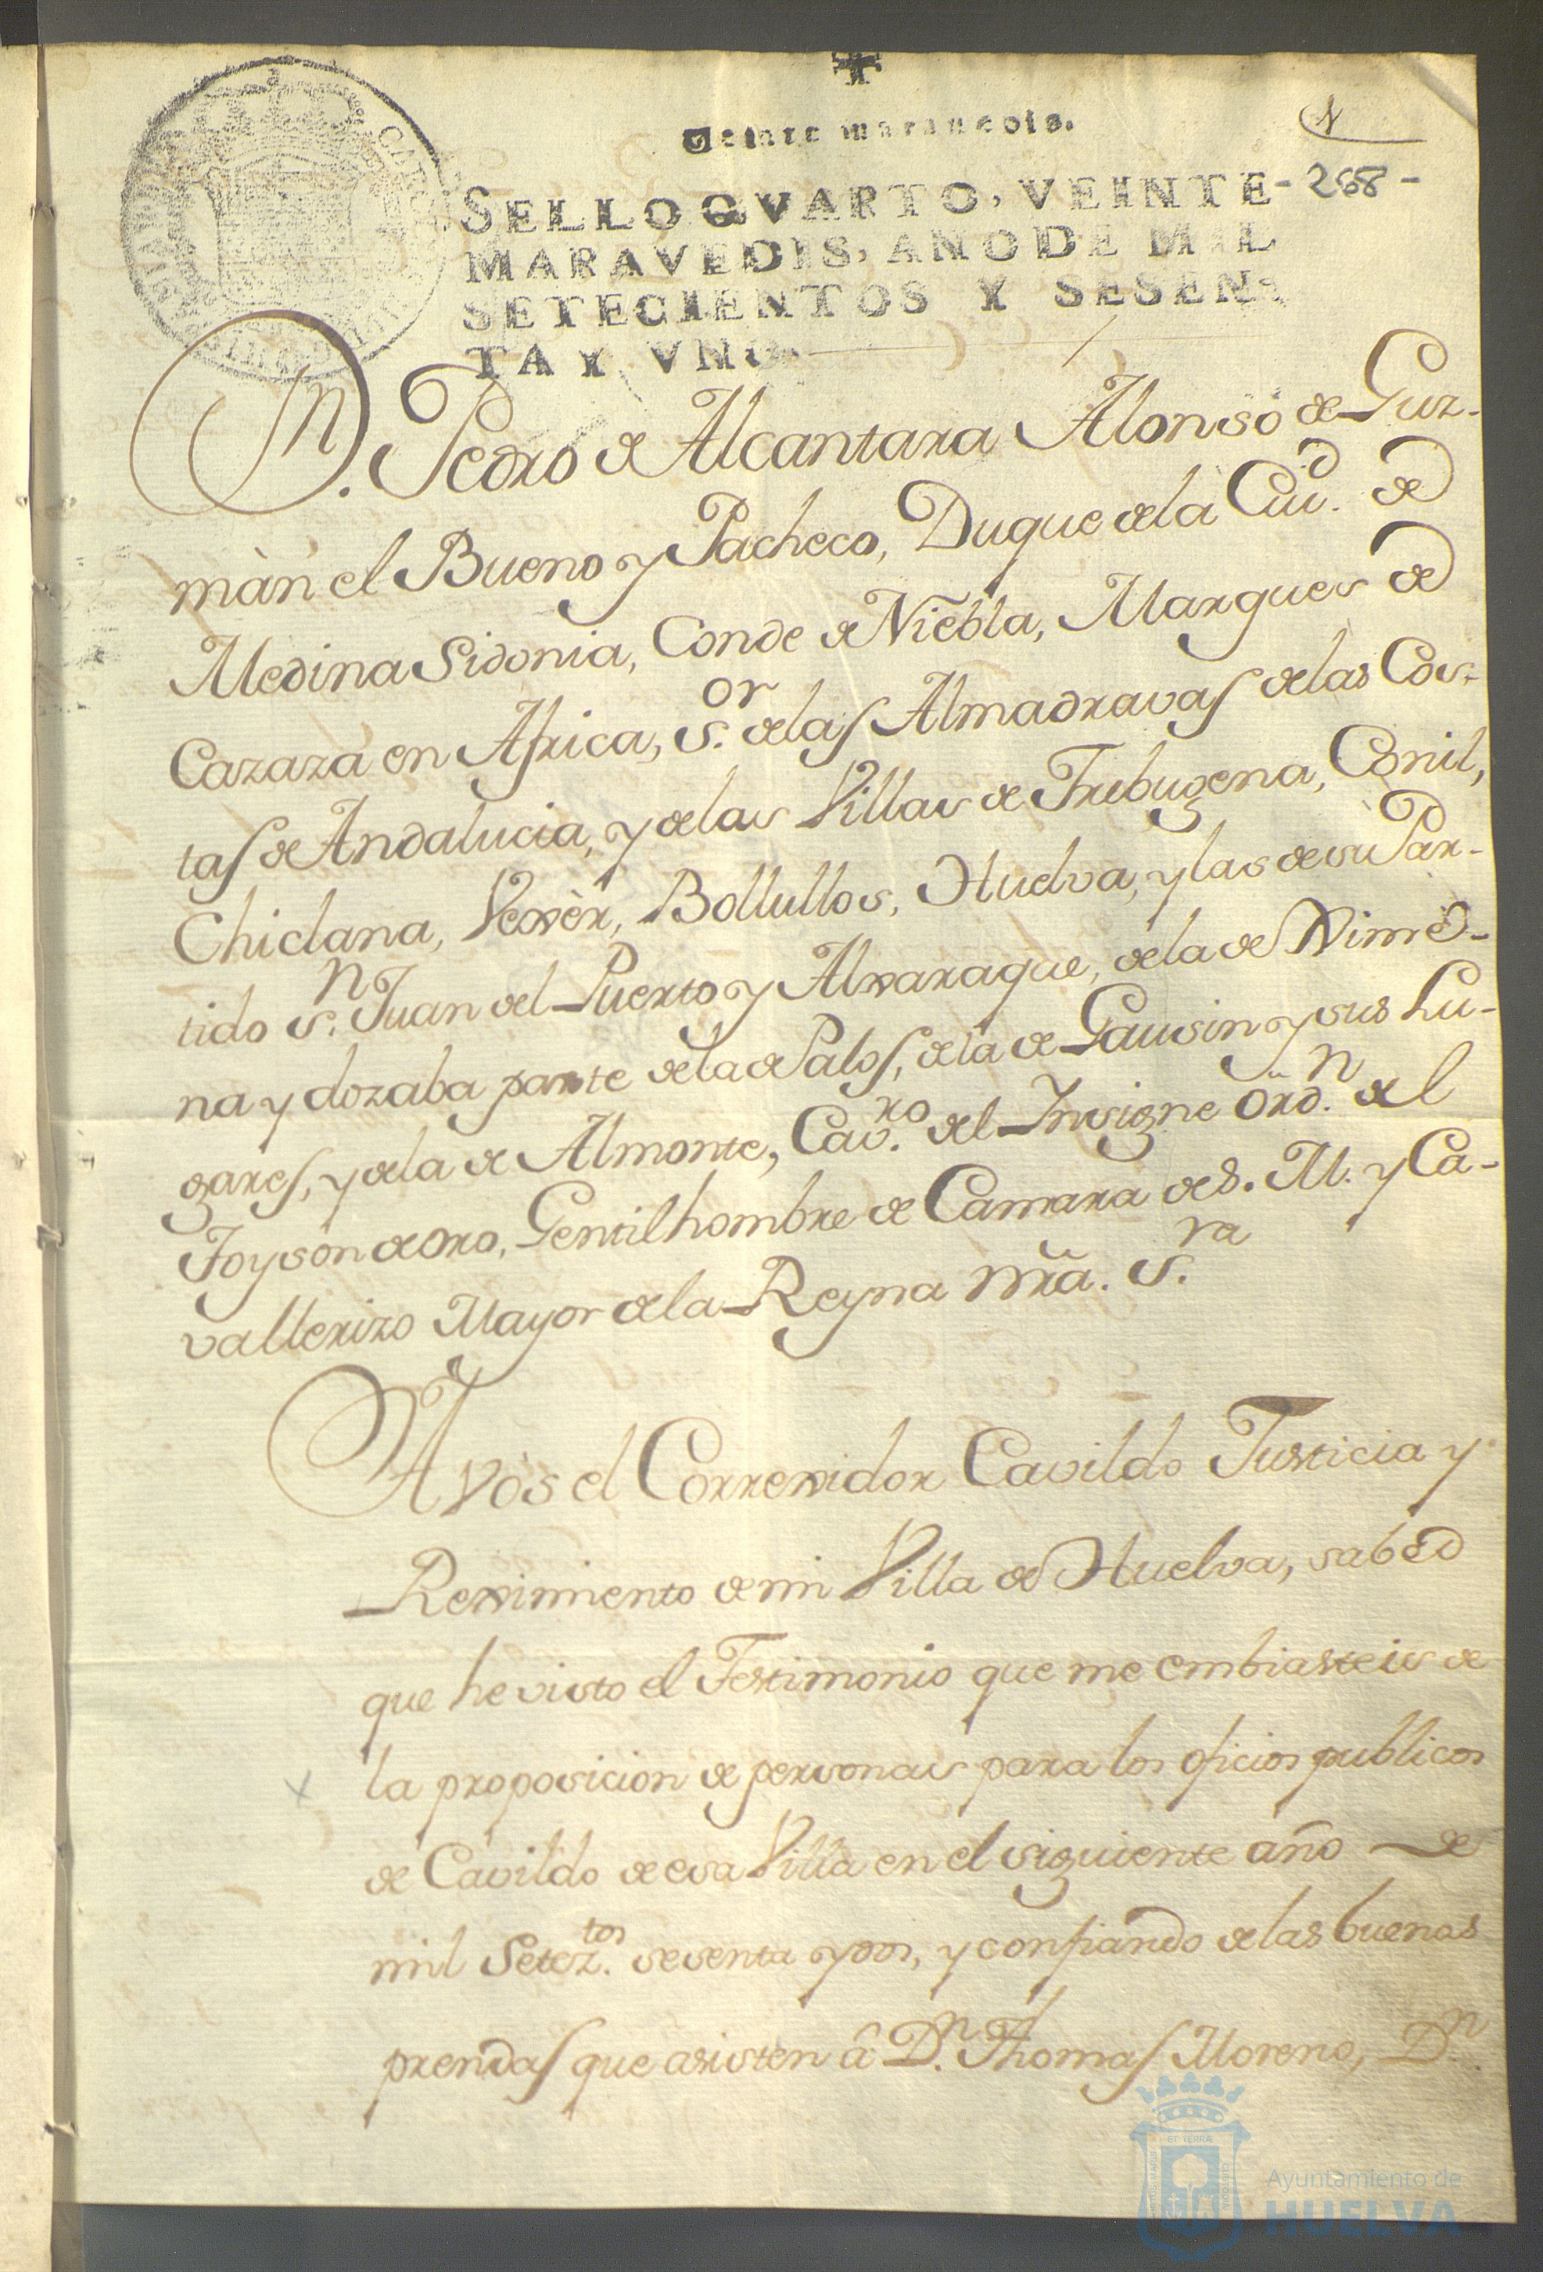 Veinte maravedis.
1
- 268 -
SELLO QVARTO, VEINTE
MARAVEDIS, AÑO DE MIL
SETECIENTOS Y SESEN-
TA Y VNO.
Dn. Pedro de Alcantara Alonso de Guz-
màn el Bueno y Pacheco, Duque de la Ciud. de
Medina Sidonia, Conde de Niebla, Marques de
Cazaza en Africa, S.or de las Almadravas de las Cos-
tas de Andalucia, y de las Villas de Trebugena, Conil,
Chiclana, Vexèr, Bollullos, Huelva, y las de su Par-
tido S.n Juan del Puerto y Alxaraque, de la de Ximè-
na y dozaba parte de la de Palos, de la de Gausin y sus Lu-
gares, y de la de Almonte, Cav.ro del Insigne Ord.n del
Toyson de Oro, Gentilhombre de Camara de S. M. y Ca-
vallerizo Mayor de la Reyna Nrã. S.ra
A vòs el Correxidor Cavildo Justicia y
Reximiento de mi Villa de Huelva, sabed
que he visto el Testimonio que me embiasteis de
la proposicion de personas para los oficios publicos
de Cavildo de esa Villa en el siguiente año de
mil Setez.tos sesenta y dos, y confiando de las buenas
prendas que asisten â D.n Thomas Moreno, D.n
Ayuntamiento de
HUELVA